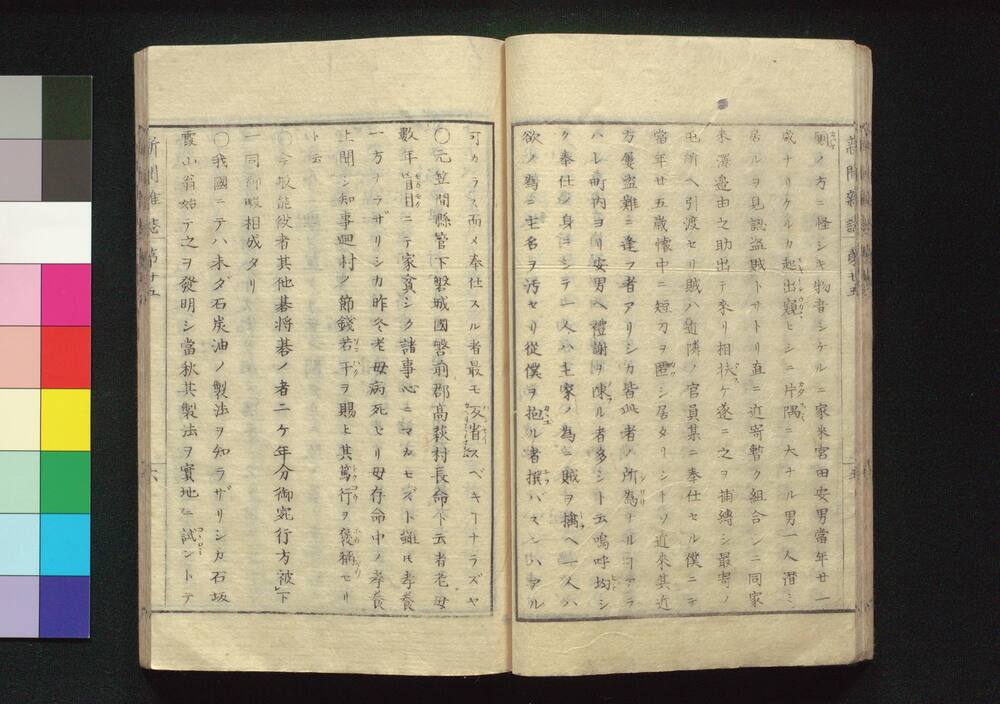 新聞雜誌 第廿五 五
厠ノ方ニ怪シキ物音シケルニ家來宮田安男當年廿一
歳ナリケルカ起出窺ヒシニ片隅ニ大ナル男一人潜ミ
居ルヲ見認盗賊トサトリ直ニ近寄暫ク組合シニ同家
來澤邉由之助出テ來リ相扶ケ遂ニ之ヲ捕縛シ最寄ノ
屯所ヘ引渡セリ賊ハ近隣ノ官員某ニ奉仕セル僕ニテ
當年廿五歳懐中ニ短刀ヲ匿シ居タリシトソ近來其近
方屢盗難ニ逢フ者アリシカ皆此者ノ所為ナルヿアラ
ハレ町内ヨリ安男ヘ禮謝ヲ陳ル者多シト云嗚呼均シ
ク奉仕ノ身ニシテ一人ハ主家ノ為ニ賊ヲ擒ヘ一人ハ
欲ノ為ニ主名ヲ汚セリ從僕ヲ抱ル者撰バズンハアル
可カラス而メ奉仕スル者最モ反省スベキヿナラズヤ
〇元笠間縣管下磐城國磐前郡髙萩村長命ト云者老母
數年盲目ニテ家貧シク諸事心ニマカセズト雖モ孝養
一方ナラザリシカ昨冬老母病死セリ母存命中ノ孝養
上聞シ知事廻村ノ節錢若干ヲ賜ヒ其篤行ヲ褒稱セリ
ト云
〇今般能役者其他碁将碁ノ者二ケ年分御宛行方被下
一同御暇相成タリ
〇我國ニテハ未ダ石炭油ノ製法ヲ知ラザリシカ石坂
霞山翁始テ之ヲ發明シ當秋其製法ヲ實地ニ試ントテ
新聞雜誌 第廿五 六